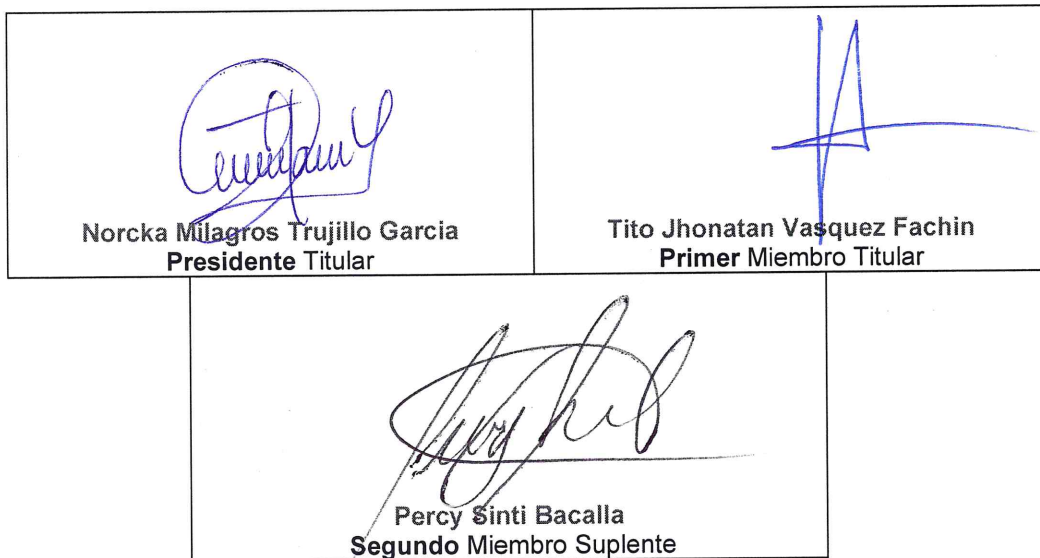 Norcka Milagros Trujillo Garcia
Presidente Titular
Tito Jhonatan Vasquez Fachin
Primer Miembro Titular
Percy Sinti Bacalla
Segundo Miembro Suplente